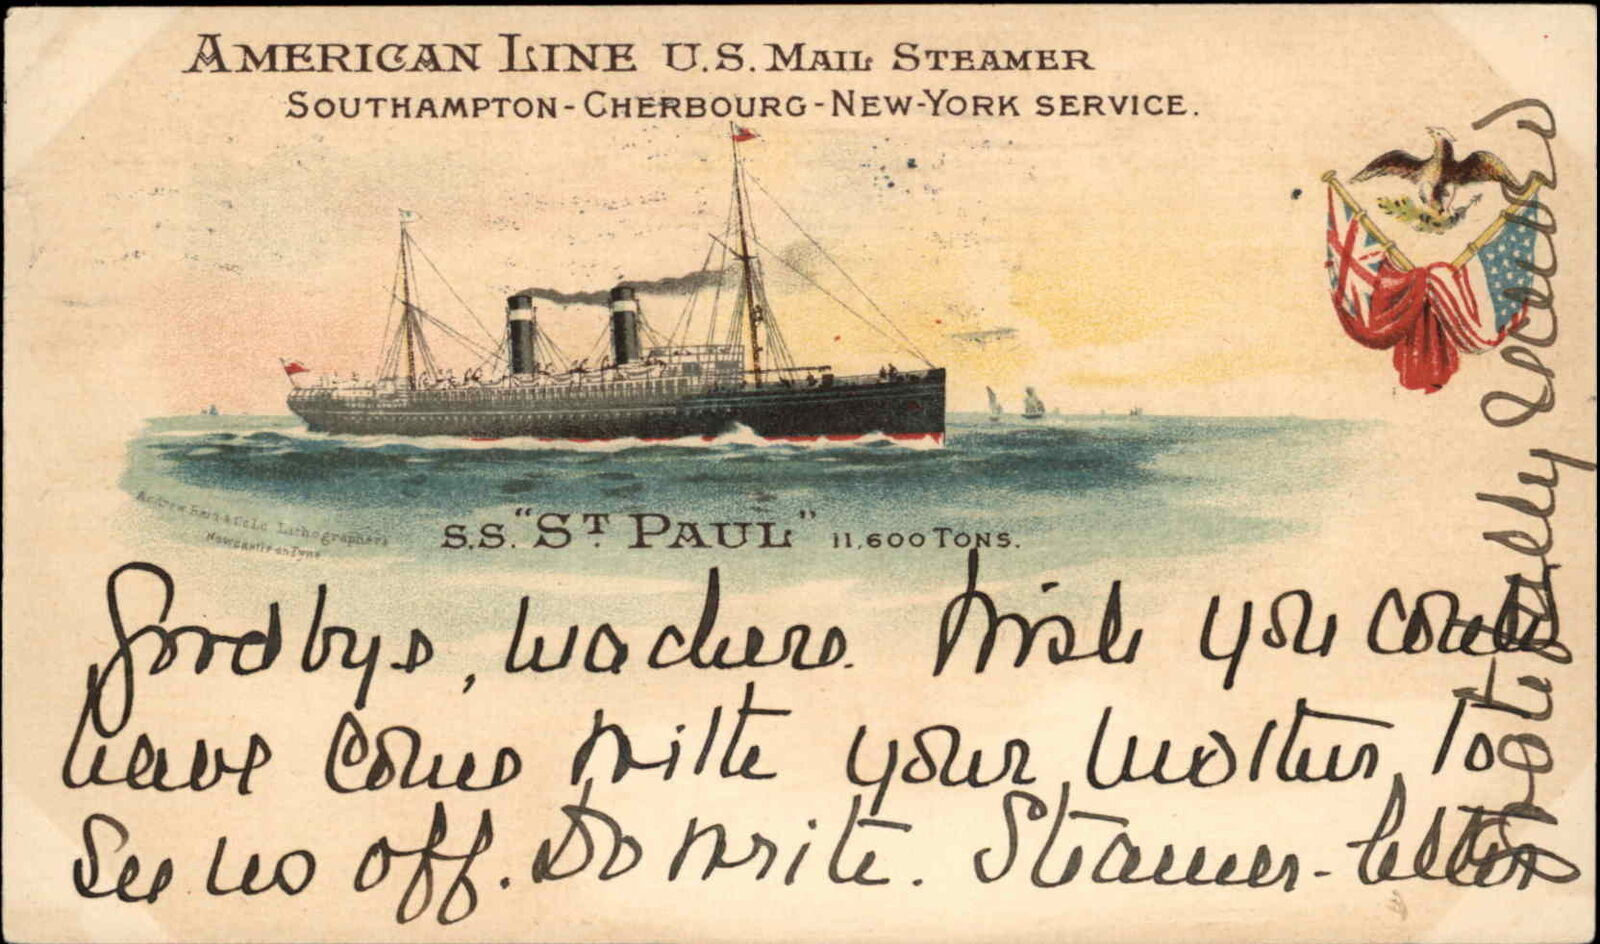 AMERICAN LINE U.S. MAIL STEAMER
SOUTHAMPTON-CHERBOURG-NEW-YORK SERVICE.
Andrew Reid & Co Ld Lithographers
Newcastle on Tyne
S.S. "ST PAUL" 11,600 TONS.
Goodbye, dear. Wish you could
have come with your mother, to
see us off. Do write. Steamer-letter
gratefully received